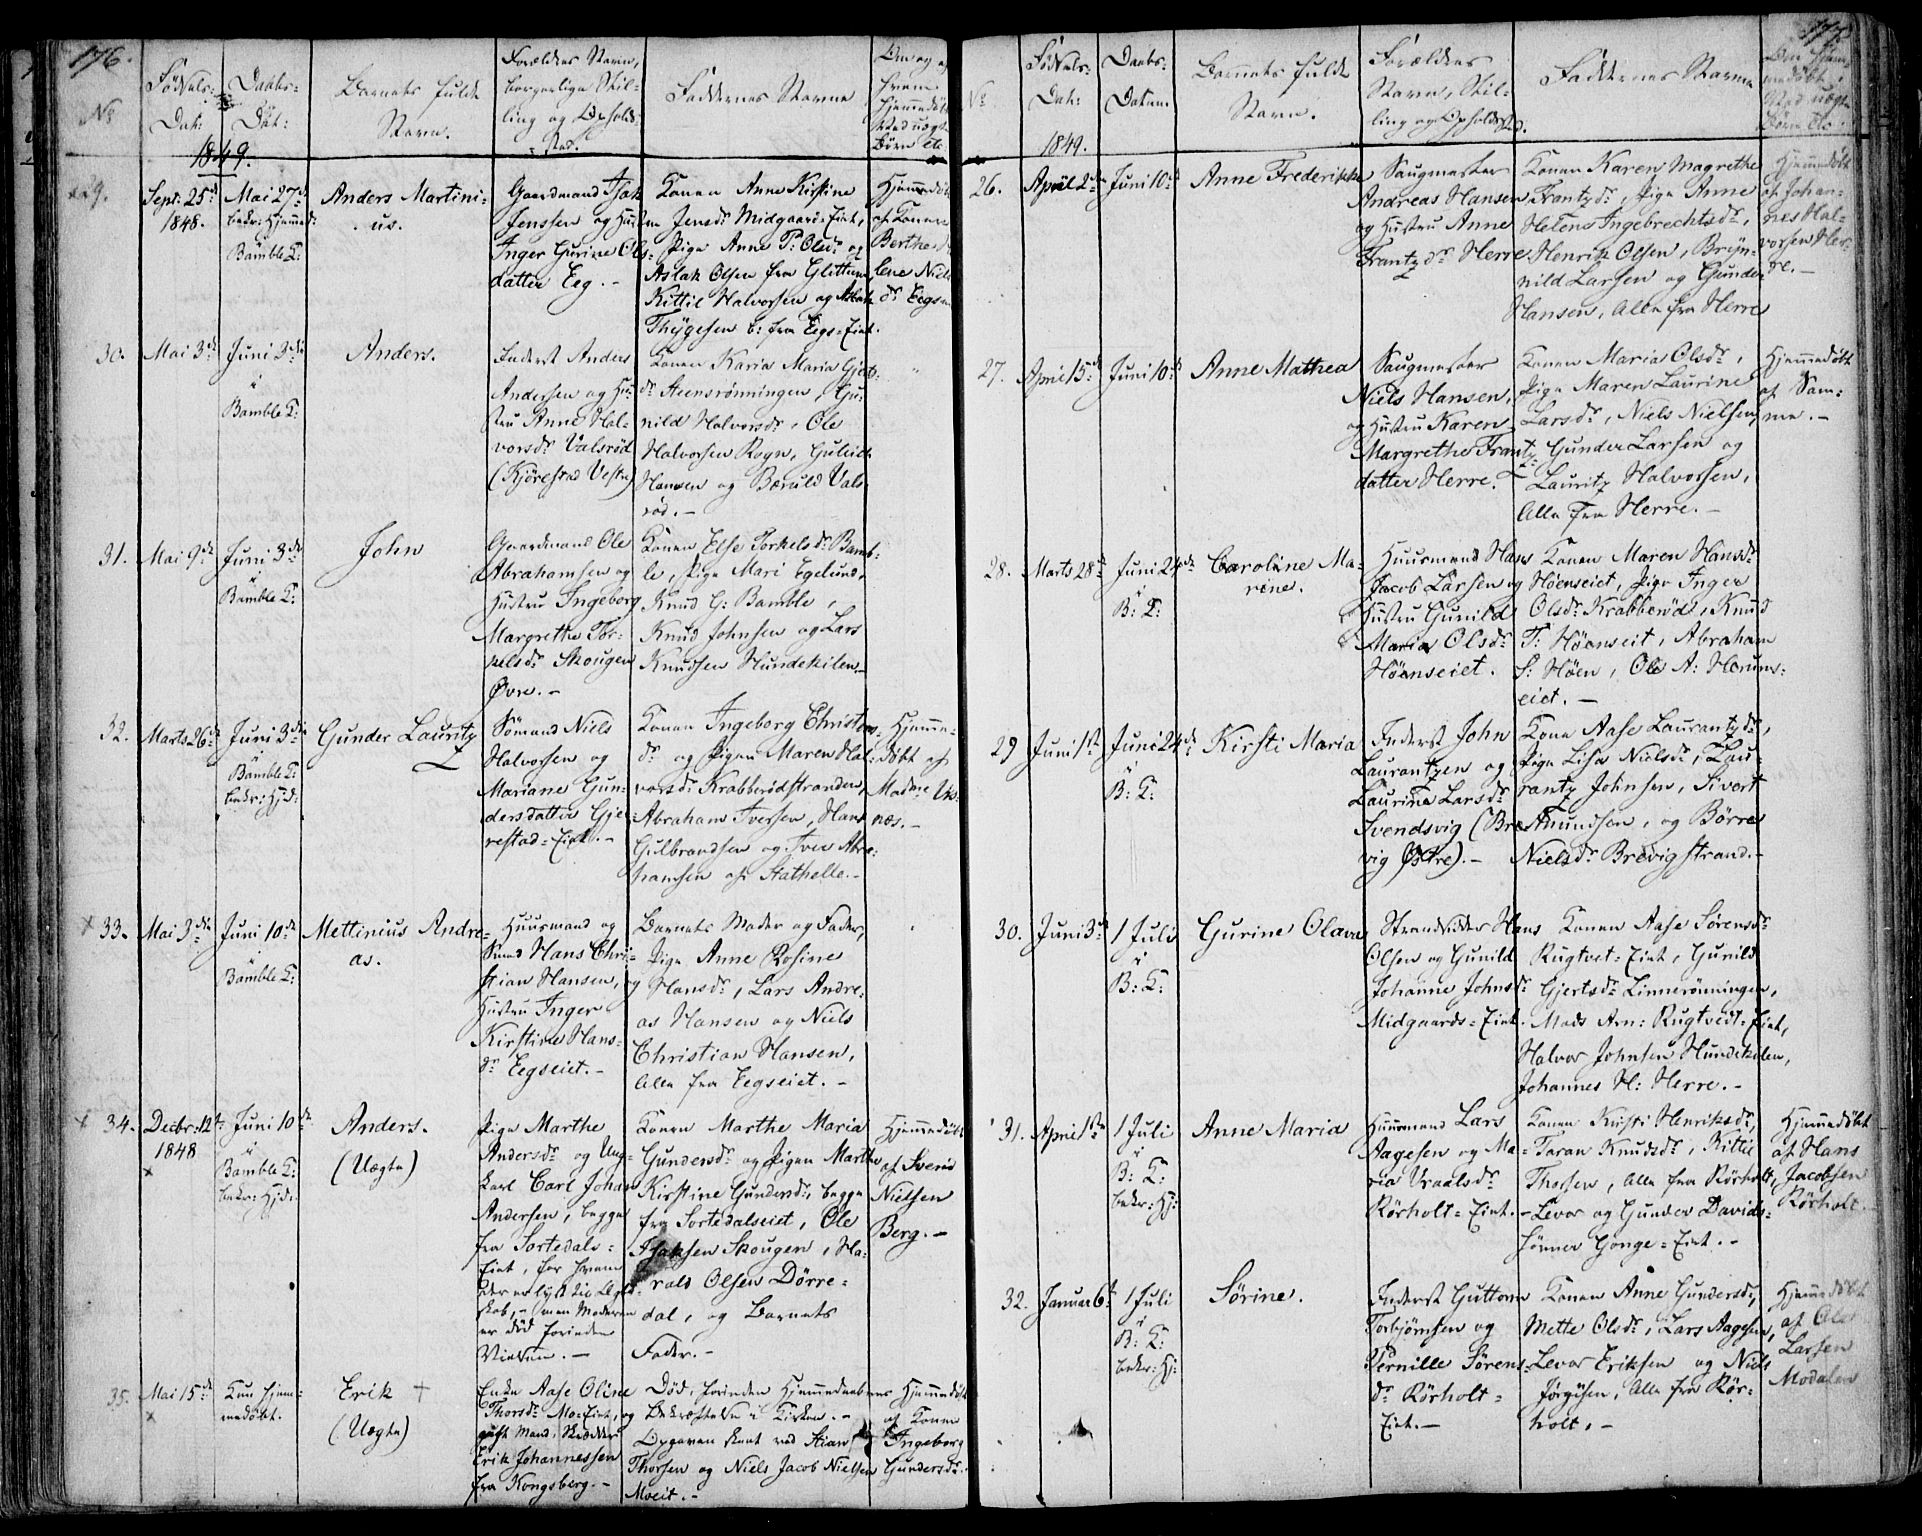 176.
No
Fødsels-
Dat:
Daabs-
Dat:
1849.
Barnets fulde
Navn.
Forældres Navn,
borgerlige Stil-
ling og Opholds-
sted.
Faddernes Navne
Om og af
hvem
hjemmedøbt
Børn etc
29.
Sept: 25de
1848.
Mai 27de
bekr: Hjemmed:
Bamble K:
Anders Martini-
us.
Gaardmand Isak
Jenssen og Hustru
Inger Gurine Ols-
datter Eeg. -
Konen Anne Kirstine
Jensdr Midgaard-Eiet,
Pige Anne P: Olsdr og
Aslak Olsen fra Glittum,
Kittil Halvorsen og Aslak
Thygesen b: fra Eegs-Eiet.
Hjemmedøbt
af Konen
Berthe
lene Niels
dr Eegs
30.
Mai 3de
Juni 3de
i
Bamble K:
Anders.
Inderst Anders
Andersen og Hu-
stru Anne Hal-
vorsdr Valsrød
(Kjørestad Vestre)
Konen Karia Maria Gjert-
dr Steensrønningen, Gu-
nild Halvorsdr, Ole
Halvorsen Rogn, Guleik
Hansen og Bæruld Vals-
rød. -
31.
Mai 9de
Juni 3de
i
Bamble K:
John
Gaardmand Ole
Abrahamsen og
Hustru Ingeborg
Margrethe Tor-
kelsdr Skougen
Øvre. -
Konen Else Torkelsdr Bamb-
le, Pige Mari Egelund,
Knud G: Bamble,
Knud Johnsen og Lars
Knudsen Hundekilen. -
32.
Marts 26de
Juni 3de
i
Bamble K:
bekr: Hjd:
Gunder Lauritz
Sømand Niels
Halvorsen og
Mariane Gun-
dersdatter Gje-
restad-Eiet. -
Konen Ingeborg Christens-
dr og Pigen Maren Hal-
vorsdr Krabberødstranden,
Abraham Iversen, Hans
Gulbrandsen og Iver Abra-
hamsen af Stathelle. -
Hjemme-
døbt af
Madme Vis-
næs. -
33.
Mai 3de
Juni 10de
i
Bamble K:
Mettinius Andre-
as.
Huusmand og
Smed Hans Chri-
stian Hansen, og
Hustru Inger
Kirstine Hans-
dr Eegseiet. -
Barnets Moder og Fader,
Pige Anne Rosine
Hansdr, Lars Andre-
as Hansen og Niels
Christian Hansen,
Alle fra Eegseiet. -
34.
Decbr: 12te
1848
Juni 10de
i
Bamble K:
bekr: Hjd:
Anders.
(Uægte)
Pige Marthe
Andersdr og Ung-
karl Carl Johan
Andersen, begge
fra Sortedals-
Eiet, for hvem
der er lyst til Ægte-
skab, - men Moderen
er død forinden
Vielsen. -
Konen Marthe Maria
Gundersdr og Pigen Marthe
Kirstine Gundersdr, begge
fra Sortedalseiet, Ole
Isaksen Skougen, Ha-
rald Olsen Dørre-
dal, og Barnets
Fader. -
Hjemmedøbt
af Svend
Nielsen
Berg. -
35.
Mai 15de
Kun hjem-
medøbt.
Erik +
(Uægte)
Enke Aase Oline
Thorsdr Mo-Eiet, og
gift Mand, Skrædder
Erik Johannessen
fra Kongsberg. -
Død, forinden Hjemmedaabens
Bekræftelse i Kirken. -
Opgaven skeet ved Stian
Thorsen og Niels Jacob Nielsen
Moeiet. -
Hjemmedøbt
af Konen
Ingeborg
Gundersdr.
177
No
Fødsels-
Dat:
1849.
Daabs-
Datum.
Barnets fulde
Navn.
Forældres
Navn, Stil-
ling og Opholdsted.
Faddernes Navne
Om hjem-
medøbt,
Ved uægte
Børn etc
26.
April 2den
Juni 10de
Anne Frederikke
Saugmester
Andreas Hansen
og Hustru Anne
Frantzdr Herre
Konen Karen Magrethe
Frantzdr, Pige Anne
Helene Ingebrechtsdr,
Henrik Olsen, Bryn-
nild Larsen og Gunder
Hansen, Alle fra Herre
Hjemmedøbt
af Johan-
nes Hal-
vorsen Her-
re. -
27.
April 15de
Juni 10de
Anne Mathea
Saugmester
Niels Hansen,
og Hustru Karen
Margrethe Frantz-
datter Herre.
Konen Maria Olsdr,
Pige Maren Laurine
Larsdr, Niels Nielsen,
Gunder Larsen og
Lauritz Halvorsen,
Alle fra Herre. -
Hjemmedøbt
af Sam-
me. -
28.
Marts 28de
Juni 24de
i
B: K:
Caroline Ma-
rine.
Huusmand Hans
Jacob Larsen og
Hustru Gunild
Maria Olsdr
Høenseiet.
Konen Maren Hansdr
Høenseiet, Pige Inger
Olsdr Krabberød, Knud
T: Høenseiet, Abraham
S: Høen, Ole A: Høens-
eiet. -
29
Juni 1ste
Juni 24de
i
B: K:
Kirsti Maria
Inderst John
Laurantzen og
Laurine Larsdr
Svendsvig (Bre-
vig Østre). -
Kone Aase Laurantzdr,
Pige Lisa Nielsdr, Lau-
rantz Johnsen, Sivert
Amundsen, og Børre
Nielsdr Brevigstrand. -
30.
Juni 3de
1 Juli
i
B: K:
Gurine Olava
Strandsidder Hans
Olsen og Gunild
Johanne Johnsdr
Midgaards-Eiet.
Konen Aase Sørensdr
Rugtvet-Eiet, Gunild
Gjertsdr Linnerønningen,
Mads Arn: Rugtvedt-Eiet,
Halvor Johnsen Hundekilen,
Johannes H: Herre. -
31.
April 1ste
1 Juli
i
B: K:
bekr: Hj:
Anne Maria
Huusmand Lars
Aagesen og Ma-
ria Vraalsdr
Rørholt-Eiet. -
Konen Kirsti Henriksdr,
Taran Knudsdr, Kittil
Thorsen, Alle fra Rørholt,
Levor og Gunder Davids-
sønner Gonge-Eiet. -
Hjemmedøbt
af Hans
Jacobsen
Rørholt.
32.
Januar 6te
1 Juli
i
B: K:
bekr: Hj:
Sørine.
Inderst Guttorm
Torbjørnsen og
Pernille Sørens-
dr Rørholt-
Eiet. -
Konen Anne Gundersdr,
Mette Olsdr, Lars Aagesen,
Levor Eriksen og Niels
Jørgisen, Alle fra Rør-
holt. -
Hjemmedøbt
af Ole
Larsen
Modalen